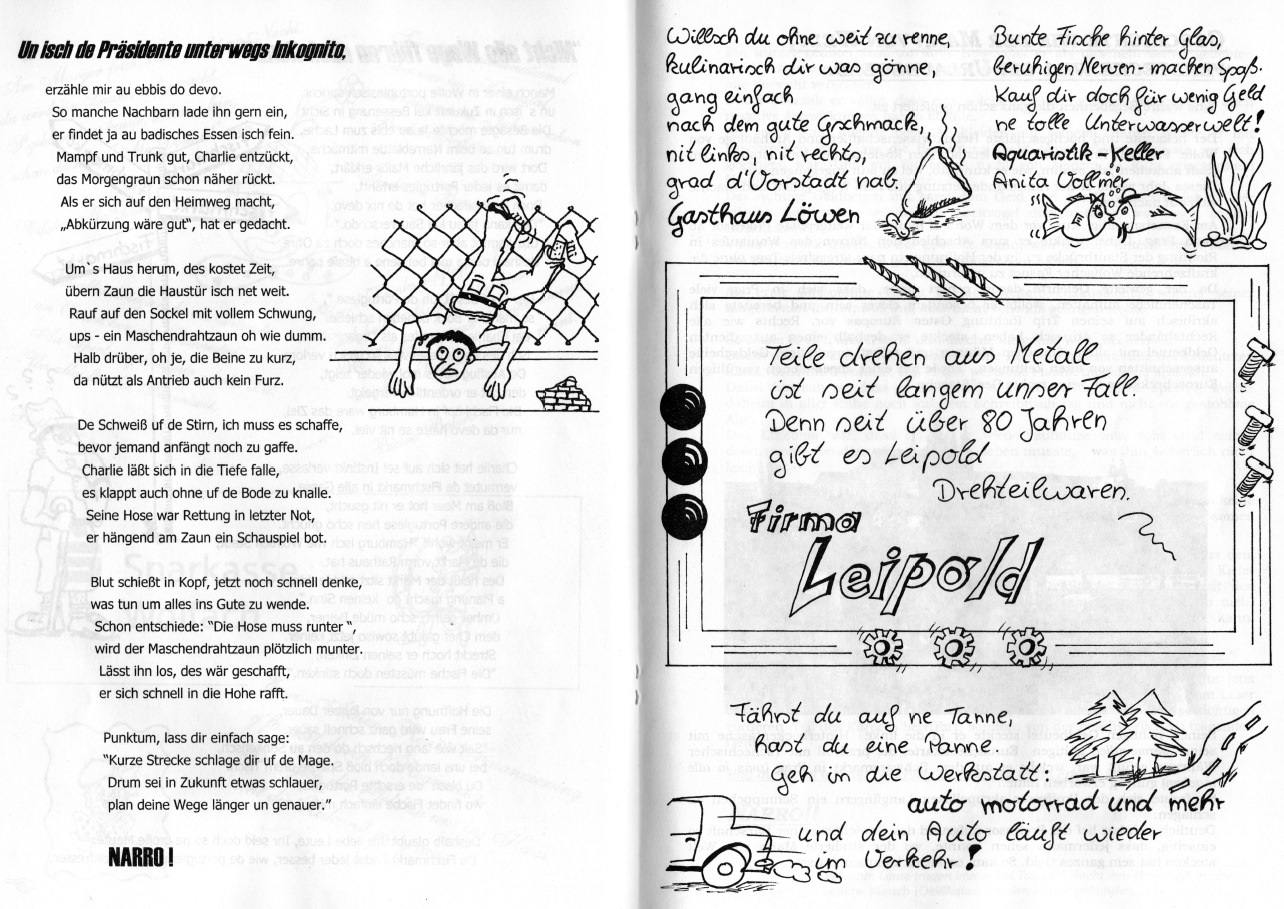 Un isch de Präsidente unterwegs Inkognito,
erzähle mir au ebbis do devo.
So manche Nachbarn lade ihn gern ein,
er findet ja au badisches Essen isch fein.
Mampf und Trunk gut, Charlie entzückt,
das Morgengraun schon näher rückt.
Als er sich auf den Heimweg macht,
„Abkürzung wäre gut“, hat er gedacht.
Um`s Haus herum, des kostet Zeit,
übern Zaun die Haustür isch net weit.
Rauf auf den Sockel mit vollem Schwung,
ups - ein Maschendrahtzaun oh wie dumm.
Halb drüber, oh je, die Beine zu kurz,
da nützt als Antrieb auch kein Furz.
De Schweiß uf de Stirn, ich muss es schaffe,
bevor jemand anfängt noch zu gaffe.
Charlie läßt sich in die Tiefe falle,
es klappt auch ohne uf de Bode zu knalle.
Seine Hose war Rettung in letzter Not,
er hängend am Zaun ein Schauspiel bot.
Blut schießt in Kopf, jetzt noch schnell denke,
was tun um alles ins Gute zu wende.
Schon entschiede: “Die Hose muss runter “,
wird der Maschendrahtzaun plötzlich munter.
Lässt ihn los, des wär geschafft,
er sich schnell in die Hohe rafft.
Punktum, lass dir einfach sage:
“Kurze Strecke schlage dir uf de Mage.
Drum sei in Zukunft etwas schlauer,
plan deine Wege länger un genauer.”
NARRO !
Willsch du ohne weit zu renne,
kulinarisch dir was gönne,
gang einfach
nach dem gute Gschmack,
nit links, nit rechts,
grad d'Vorstadt nab.
Gasthaus Löwen
Bunte Fische hinter Glas,
beruhigen Nerven - machen Spaß.
Kauf dir doch für wenig Geld
ne tolle Unterwasserwelt!
Aquaristik - Keller
Anita Vollmer
Teile drehen aus Metall
ist seit langem unser Fall.
Denn seit über 80 Jahren
gibt es Leipold
Drehteilwaren.
Firma
Leipold
Fährst du auf ne Tanne,
hast du eine Panne.
geh in die Werkstatt:
auto motorrad und mehr
und dein Auto läuft wieder
im Verkehr!